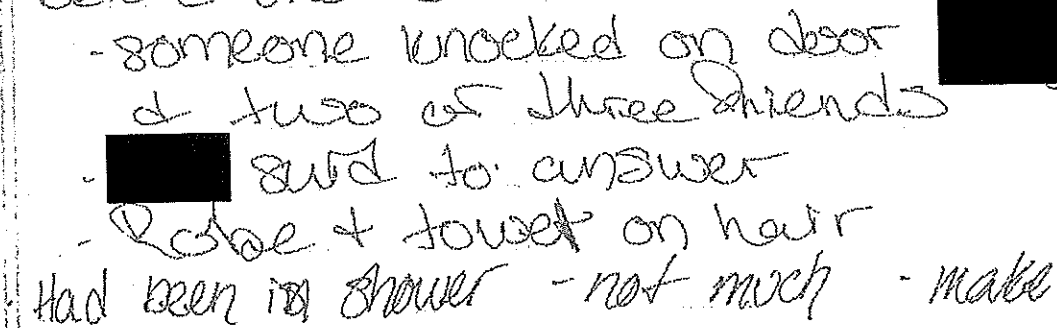 - someone knocked on door
& two or three friends
- said to answer
- Robe + towel on hair
Had been in shower - not much - make